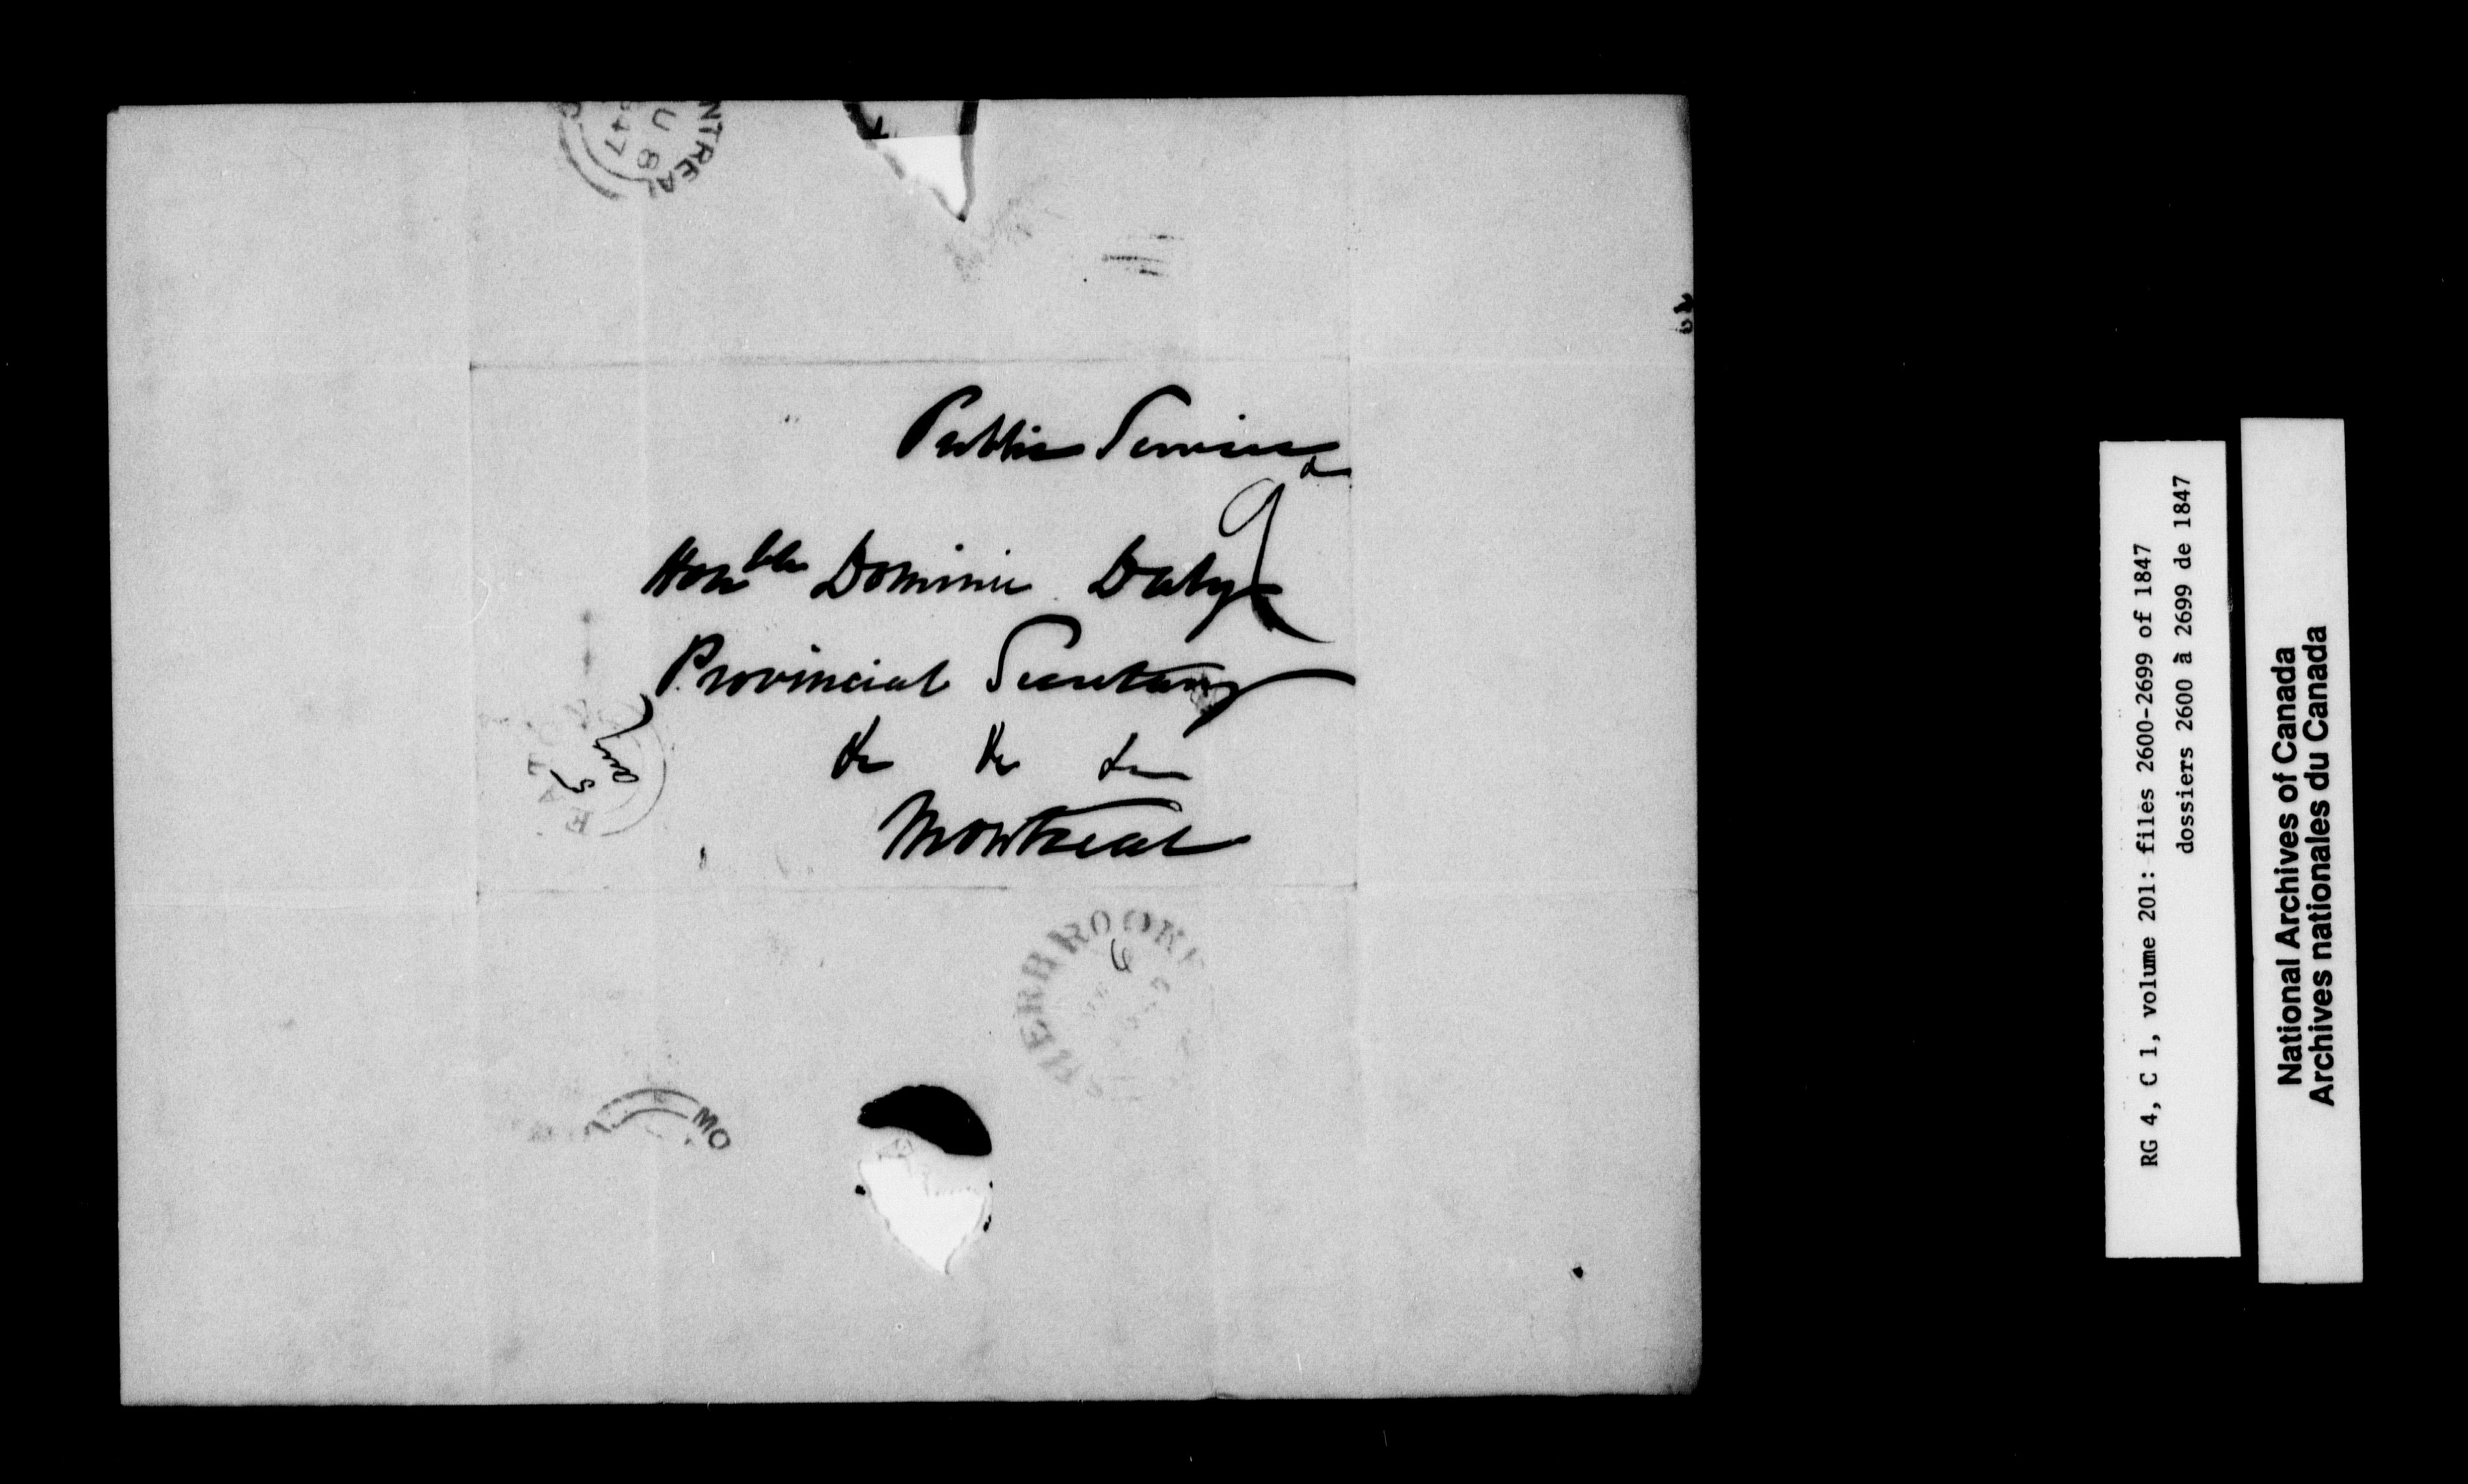 NTREAL
U 8
847
Public Service
Honble Dominic Daly
Provincial Secretary
&c &c &c
Montreal
EATON
5
Aug
SHERBROOKE
6
MO
RG 4, C 1, volume 201: files 2600-2699 of 1847
dossiers 2600 à 2699 de 1847
National Archives of Canada
Archives nationales du Canada